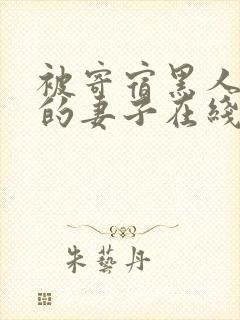 被寄宿黑人
的妻子在綫
朱藝丹